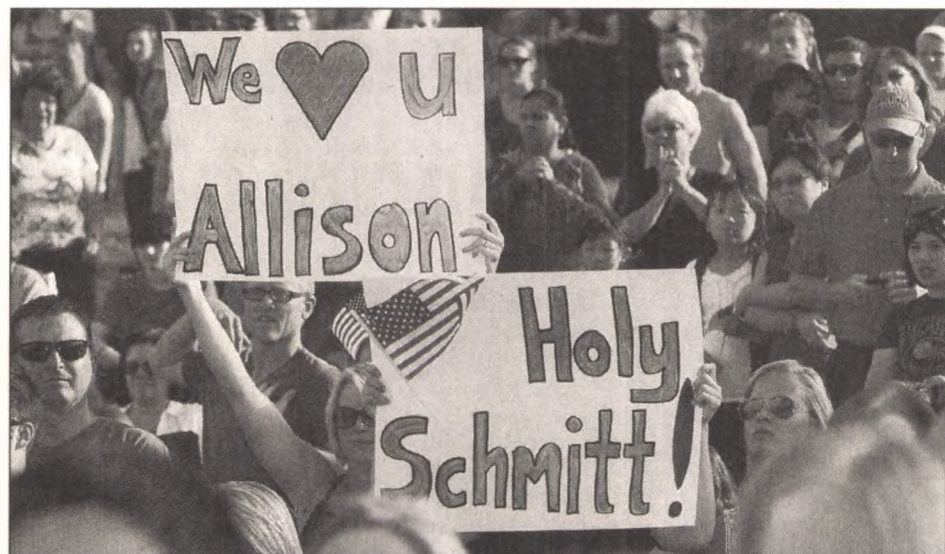 We ♥ U
Allison
Holy
Schmitt!